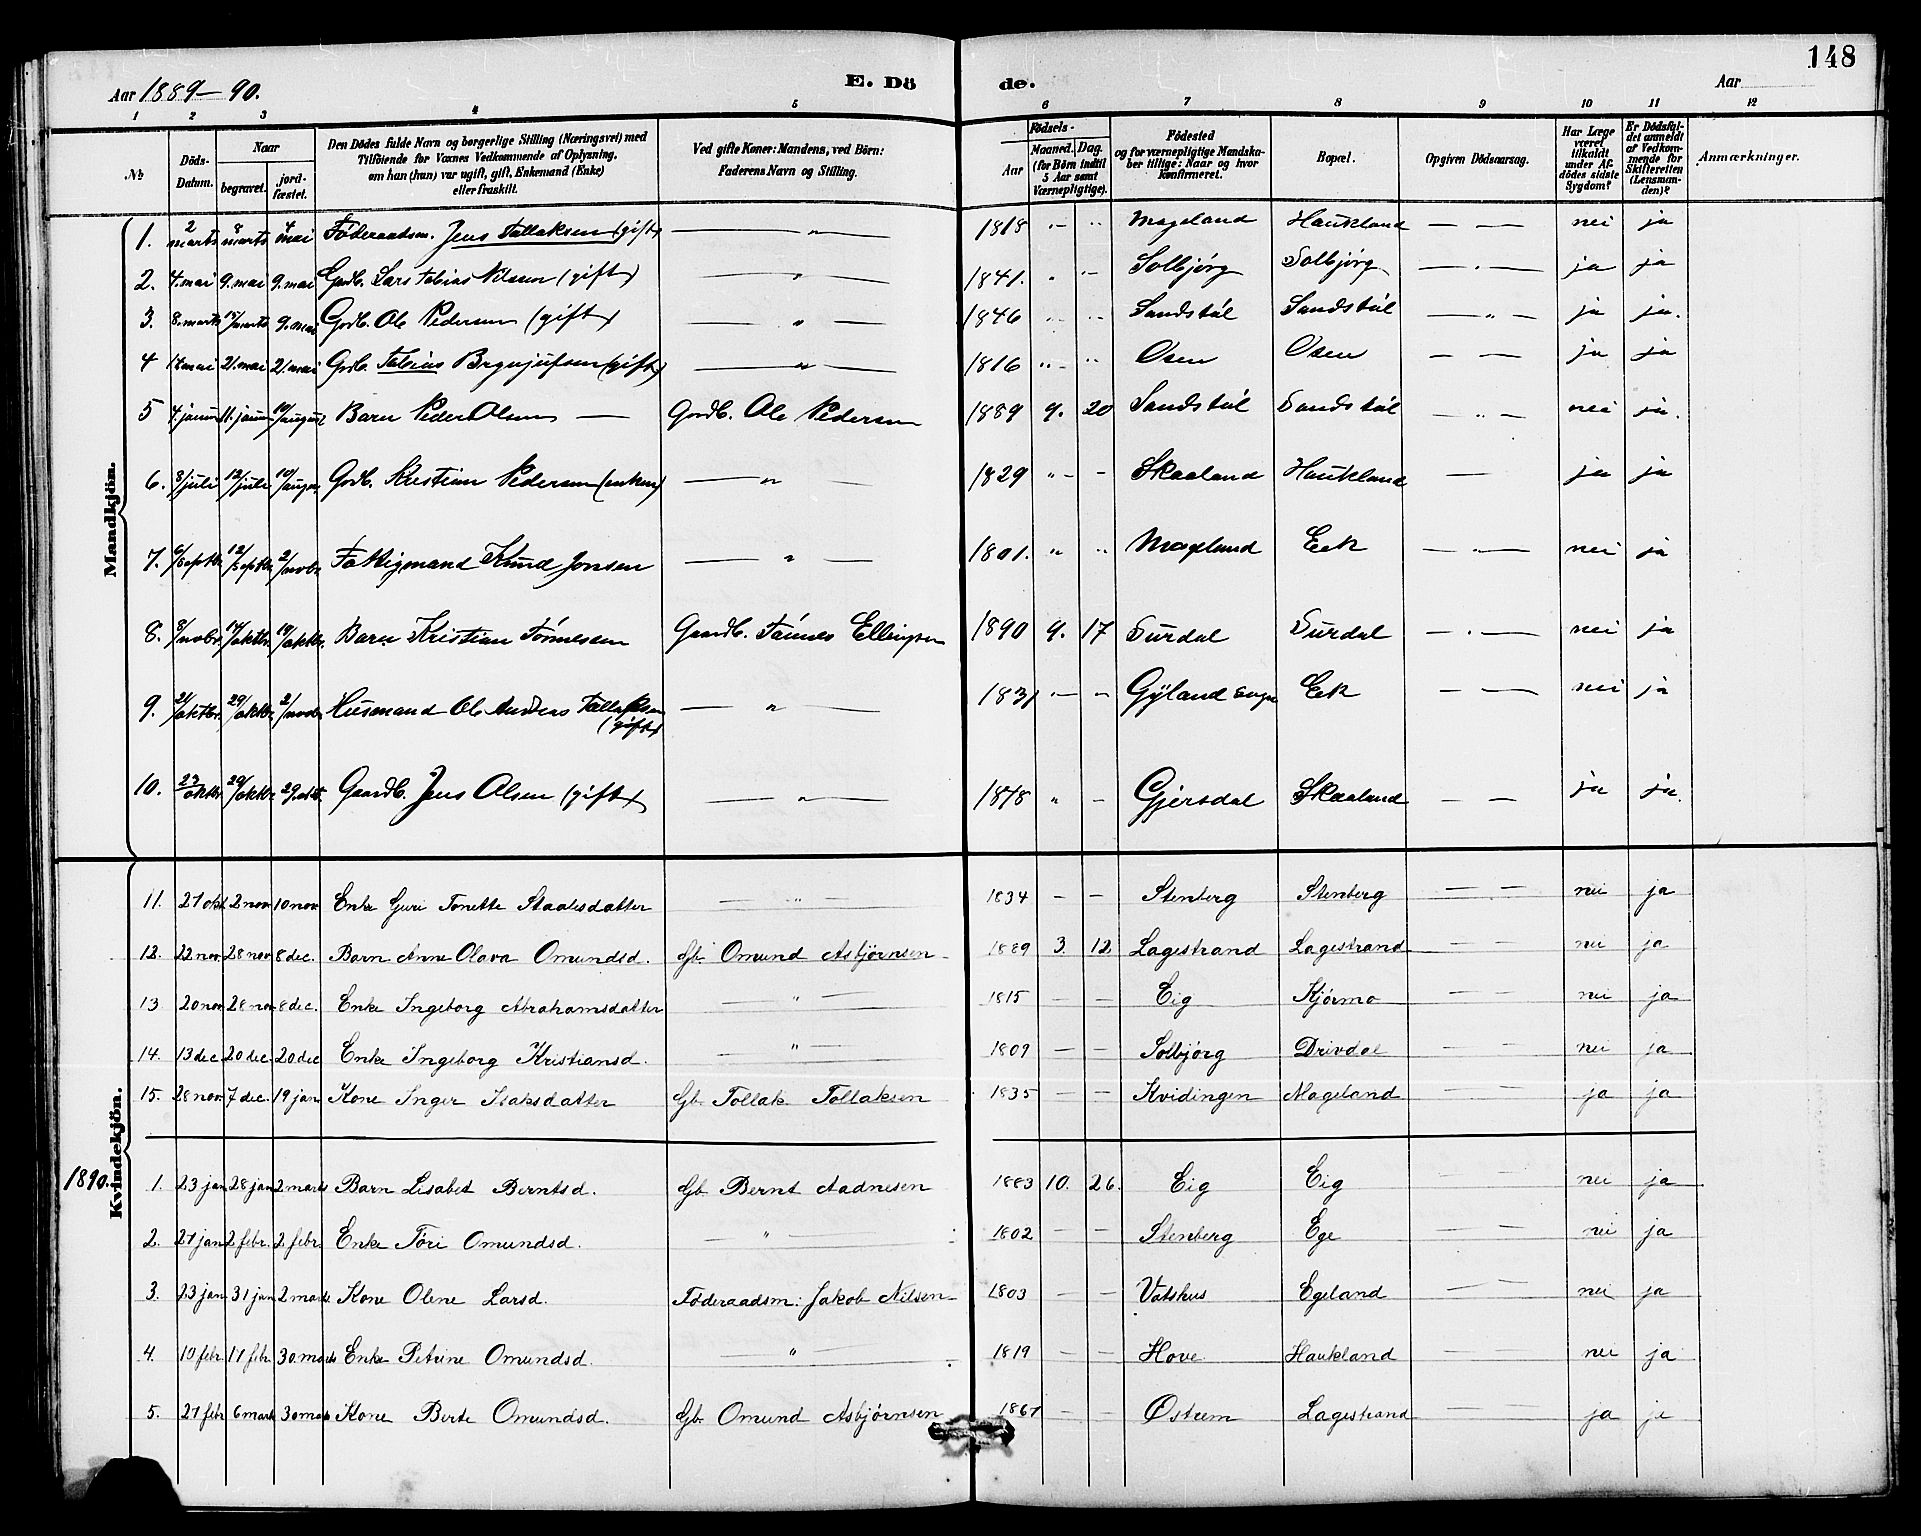 148
Aar 1889-90. E. Dö de. Aar
1 2 3 4 5 6 7 8 9 10 11 12
№ Döds-Datum. Naar begravet. jordfæstet. Den Dödes fulde Navn og borgerlige Stilling (Næringsvei) med Tilföiende for Voxnes Vedkommende af Oplysning, om han (hun) var ugift, gift, Enkemand (Enke) eller fraskilt. Ved gifte Koner: Mandens, ved Börn: Faderens Navn og Stilling. Födsels- Aar Maaned. Dag. (for Börn indtil 5 Aar samt Værnepligtige). Födested og for værnepligtige Mandskaber tillige: Naar og hvor konfirmeret. Bopæl. Opgiven Dödsaarsag. Har Læge været tilkaldt under Afdödes sidste Sygdom? Er Dödsfaldet anmeldt af Vedkommende for Skifteretten (Lensmanden)? Anmærkninger.
Mandkjön.
1. 2 marts 8 marts 4 mai Föderaadsm. Jens Tallaksen (gift) — " — 1818 Mageland Haukland — — nei ja
2. 4. mai 9. mai 9. mai Gardb. Lars Tobias Nilsen (gift) — " — 1841. Solbjörg Solbjörg — " — ja ja
3. 8. marts 15/marts 9. mai Gardb. Ole Pedersen (gift) — " — 1846 Sandstöl Sandstöl — " — ja ja.
4 14 mai 21. mai 21. mai Gardb. Tobias Brynjulfsen (gift) — " — 1816 Osen Osen — — ja ja
5 4. januar 11. januar 10/august Barn Peder Olsen — Gardb. Ole Pedersen 1889 9. 20 Sandstöl Sandstöl — " — nei ja.
6. 8/juli 12/juli 10/august Gardb. Kristian Pedersen (enkem) — " — 1829 Skaaland Haukland — ja ja
7. 6/septbr. 12/septbr. 2/novbr. Fattigmand Knud Jonsen — " — 1801. Mageland Eek — " — nei ja
8. 8/novbr. 17/oktbr. 19/oktbr. Barn Kristian Tönnesen Gaardb. Tönnes Ellingsen 1890 9. 17 Surdal Surdal — . — nei ja
9. 21/oktbr. 29/oktbr. 2/novbr. Husmand Ole Anders Tallaksen — " — 1831 Gyland Sogn Eek — — nei ja
(gift)
10. 23/oktbr. 29/oktbr. 29. oktbr. Gaardb. Jens Olsen (gift) — " — 1848 Gjersdal Skaaland — — ja ja.
Kvindekjön.
11. 27 okt. 2 nov. 10 nov. Enke Guri Tonette Staalesdatter — " — 1834 — — Stenberg Stenberg — — nei ja
12. 22 nov. 28 nov. 8 dec. Barn Anne Olava Omundsd. Gb. Omund Asbjørnsen 1889 3. 12 Lagestrand Lagestrand — — nei ja
13 20 nov. 28 nov. 8 dec. Enke Ingeborg Abrahamsdatter — " — 1815 — — Eig Kjörmo — — nei ja
14. 13 dec. 20 dec. 20 dec Enke Ingeborg Kristiansd. — " — 1809 — — Solbjörg Drivdal — — nei ja
15. 28 nov. 7 dec. 19 jan Kone Inger Isaksdatter Gb. Tollak Tollaksen 1835 — — Kvidingen Mageland — — ja ja
1890. 1. 23 jan 28 jan 2 marts Barn Lisabet Berntsd. Gb Bernt Aadnesen 1883 10. 26. Eig Eig nei ja
2. 27 jan 2 febr. 2 febr. Enke Töri Omundsd. — " — 1802 — — Stenberg Ege — — nei ja
3. 23 jan 31 jan 2 marts Kone Olene Larsd. Föderaadsm: Jakob Nilsen 1803 — — Vatshus Egeland — — nei ja
4. 10 febr 17 febr 30 marts Enke Petrine Omundsd. — " — 1819 — — Hove Haukland nei ja
5. 27 febr 6 marts 30 marts Kone Berte Omundsd. Gb. Omund Asbjørnsen 1867 — — Østrem Lagestrand ja ja